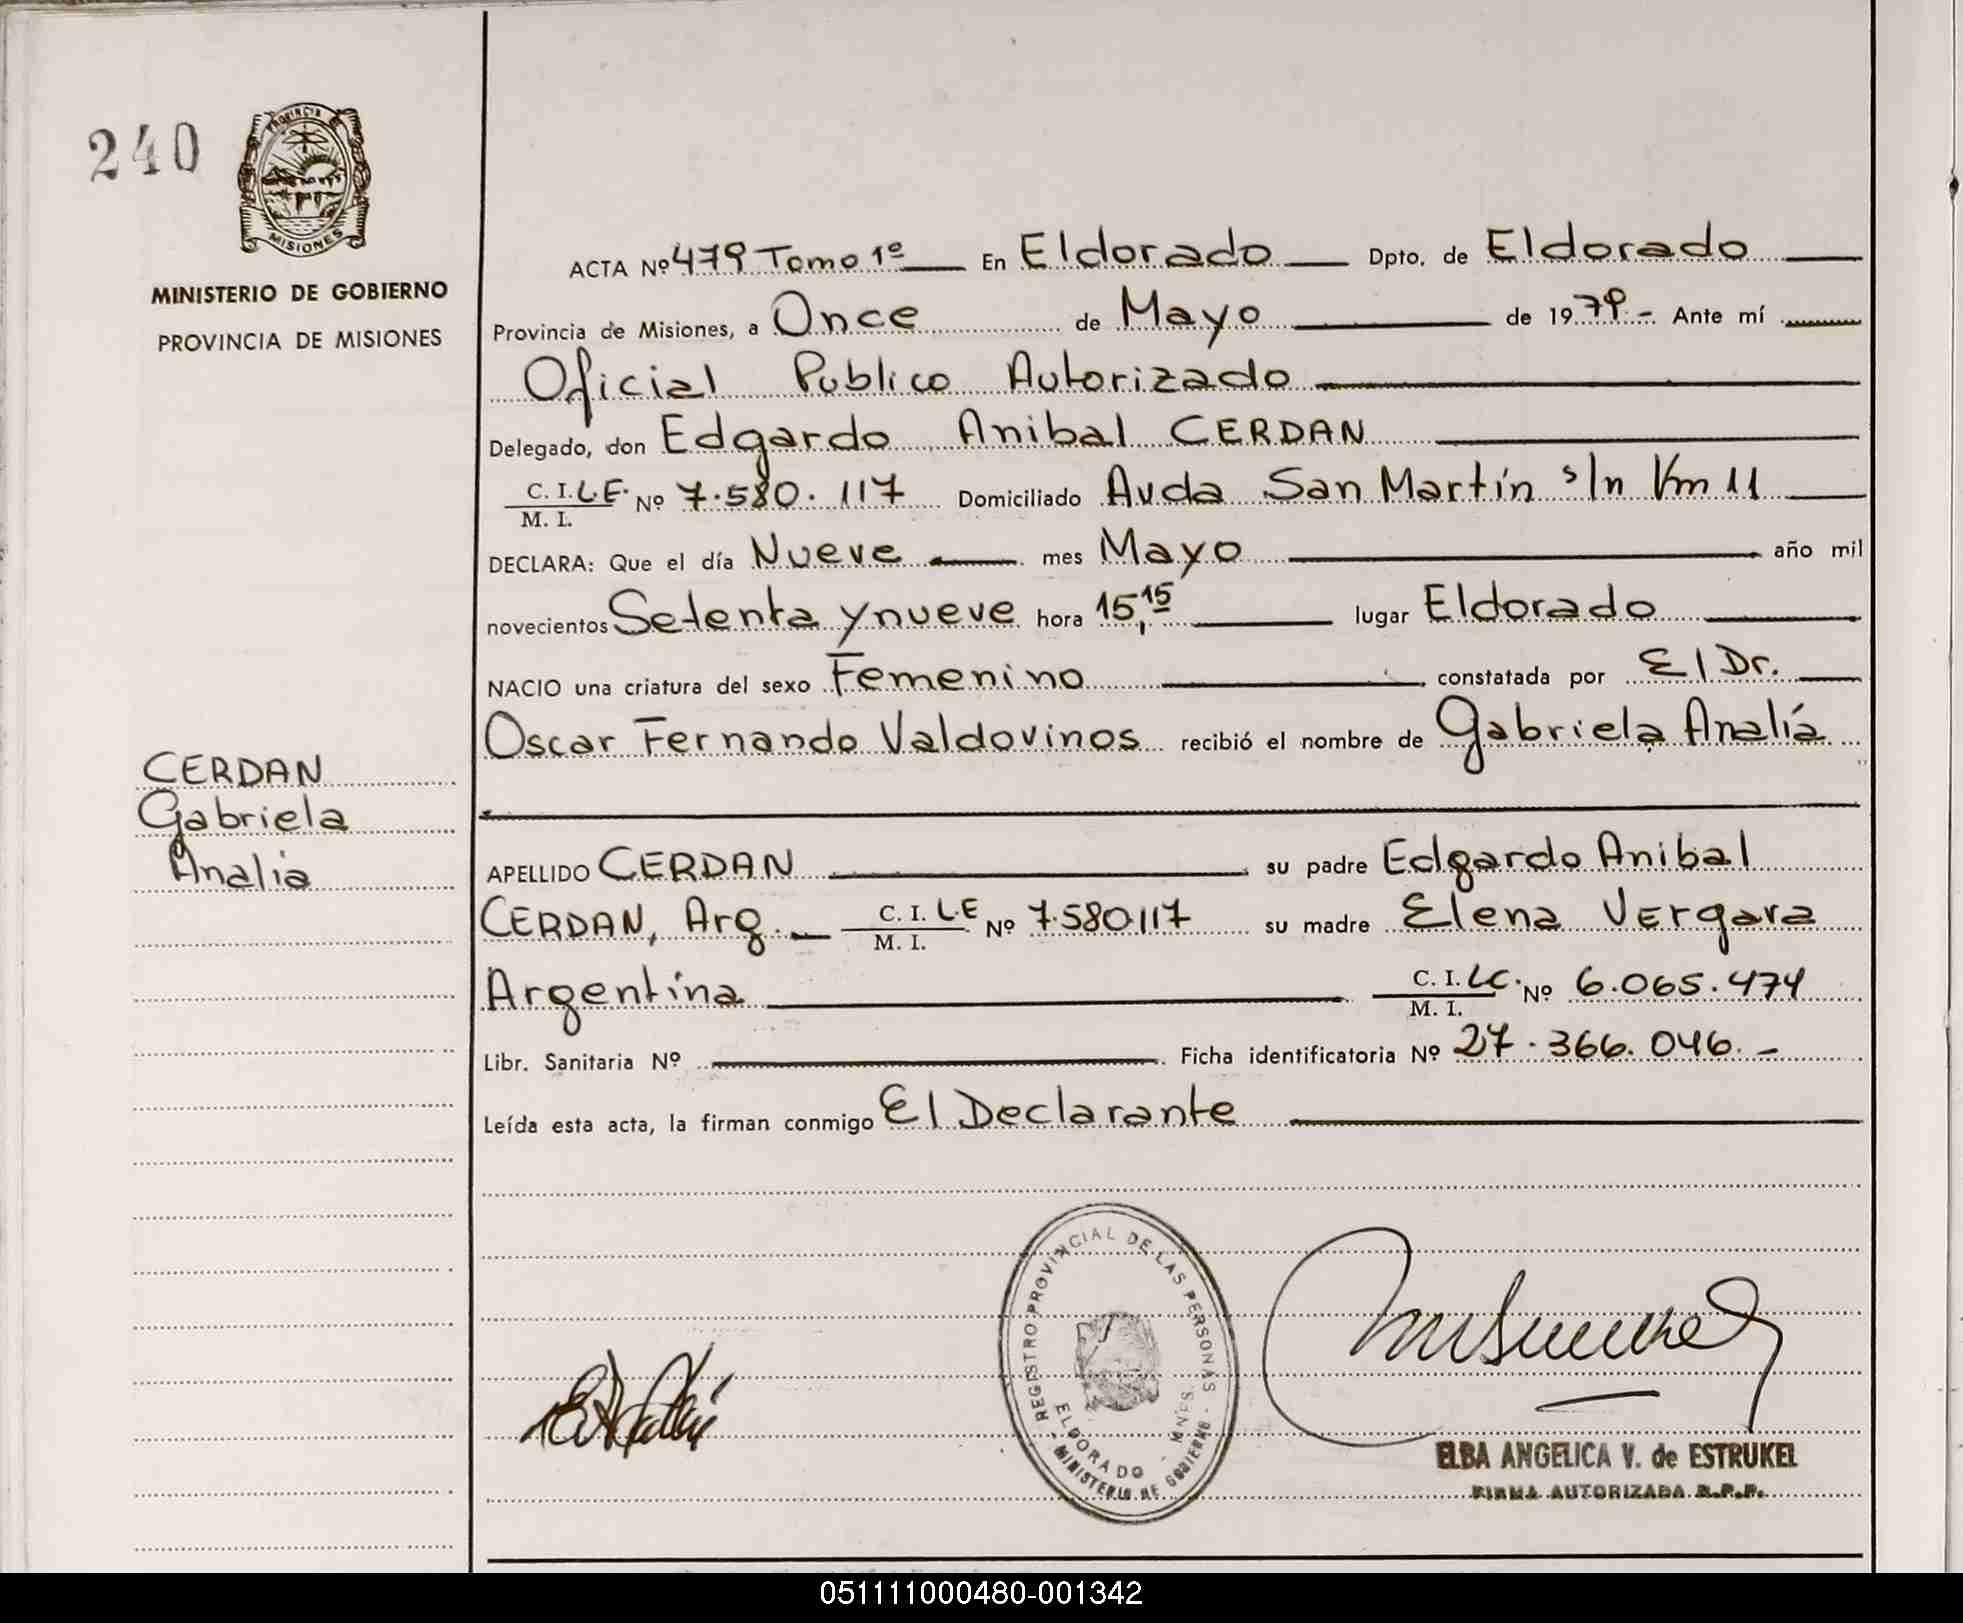 240
PROVINCIA DE
MISIONES
MINISTERIO DE GOBIERNO
PROVINCIA DE MISIONES
CERDAN
Gabriela
Analia
ACTA Nº 479 Tomo 1º En Eldorado Dpto. de Eldorado
Provincia de Misiones, a Once de Mayo de 1979.- Ante mí
Oficial Publico Autorizado
Delegado, don Edgardo Anibal CERDAN
C. I. L.E. Nº 7.580.117 Domiciliado Avda San Martín s/n Km 11
M. I.
DECLARA: Que el día Nueve mes Mayo año mil
novecientos Setenta y nueve hora 15,15 lugar Eldorado
NACIO una criatura del sexo Femenino, constatada por El Dr.
Oscar Fernando Valdovinos recibió el nombre de Gabriela Analía
APELLIDO CERDAN su padre Edgardo Anibal
CERDAN, Arg. C. I. L.E Nº 7.580.117 su madre Elena Vergara
M. I.
Argentina C. I. LC. Nº 6.065.474
M. I.
Libr. Sanitaria Nº Ficha identificatoria Nº 27.366.046.-
Leída esta acta, la firman conmigo El Declarante
REGISTRO PROVINCIAL DE LAS PERSONAS
ELDORADO - MNES.
- MINISTERIO DE GOBIERNO -
ELBA ANGELICA V. de ESTRUKEL
FIRMA AUTORIZADA R.P.P.
051111000480-001342